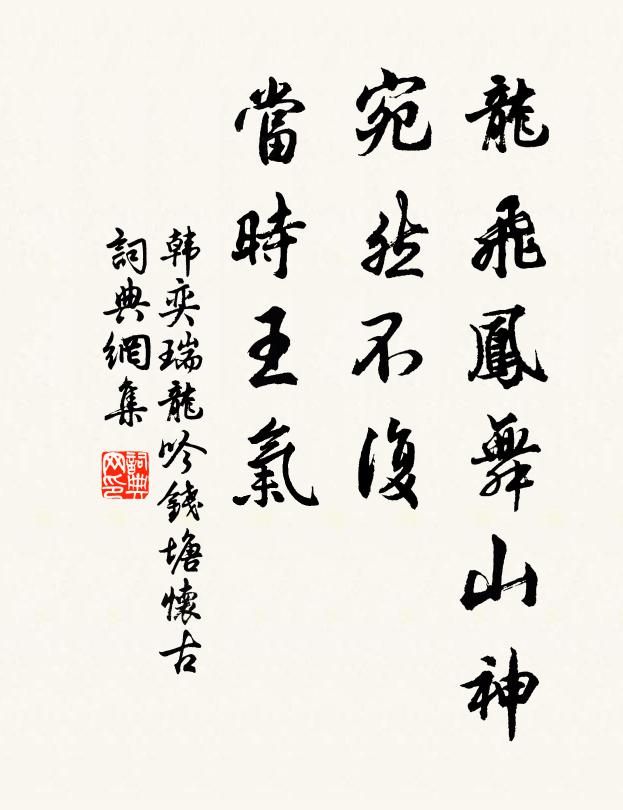 龍飛鳳舞山神
宛然不復
當時王氣
韩奕瑞龍吟錢塘懷古
詞典網集
詞典
网印